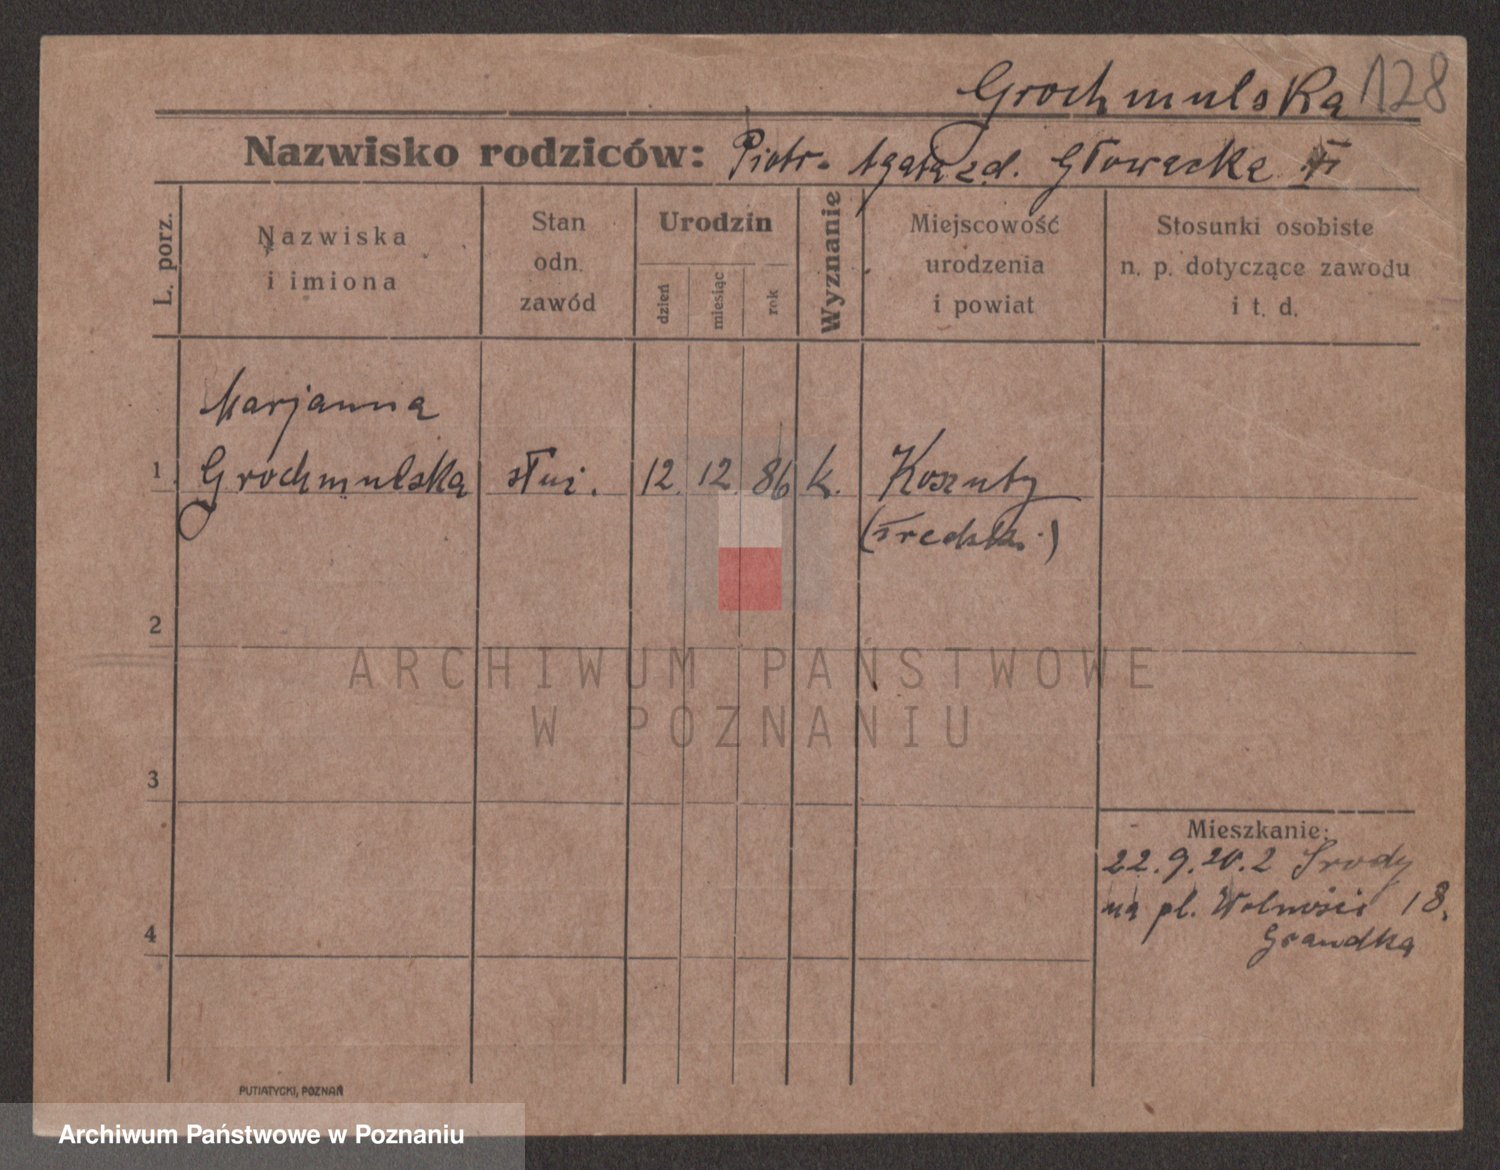 Grochmulska 128
Nazwisko rodziców: Piotr - Agata zd. Głowacka
L. porz.
Nazwiska
i imiona
Stan
odn.
zawód
Urodzin
dzień
miesiąc
rok
Wyznanie
Miejscowość
urodzenia
i powiat
Stosunki osobiste
n. p. dotyczące zawodu
i t. d.
Marjanna
1 Grochmulska służ. 12. 12. 86 k. Koszuty
(średzk.)
2
ARCHIWUM PAŃSTWOWE
W POZNANIU
3
Mieszkanie:
22.9.20. z Środy
na pl. Wolności 18.
4
PUTIATYCKI, POZNAŃ
Archiwum Państwowe w Poznaniu